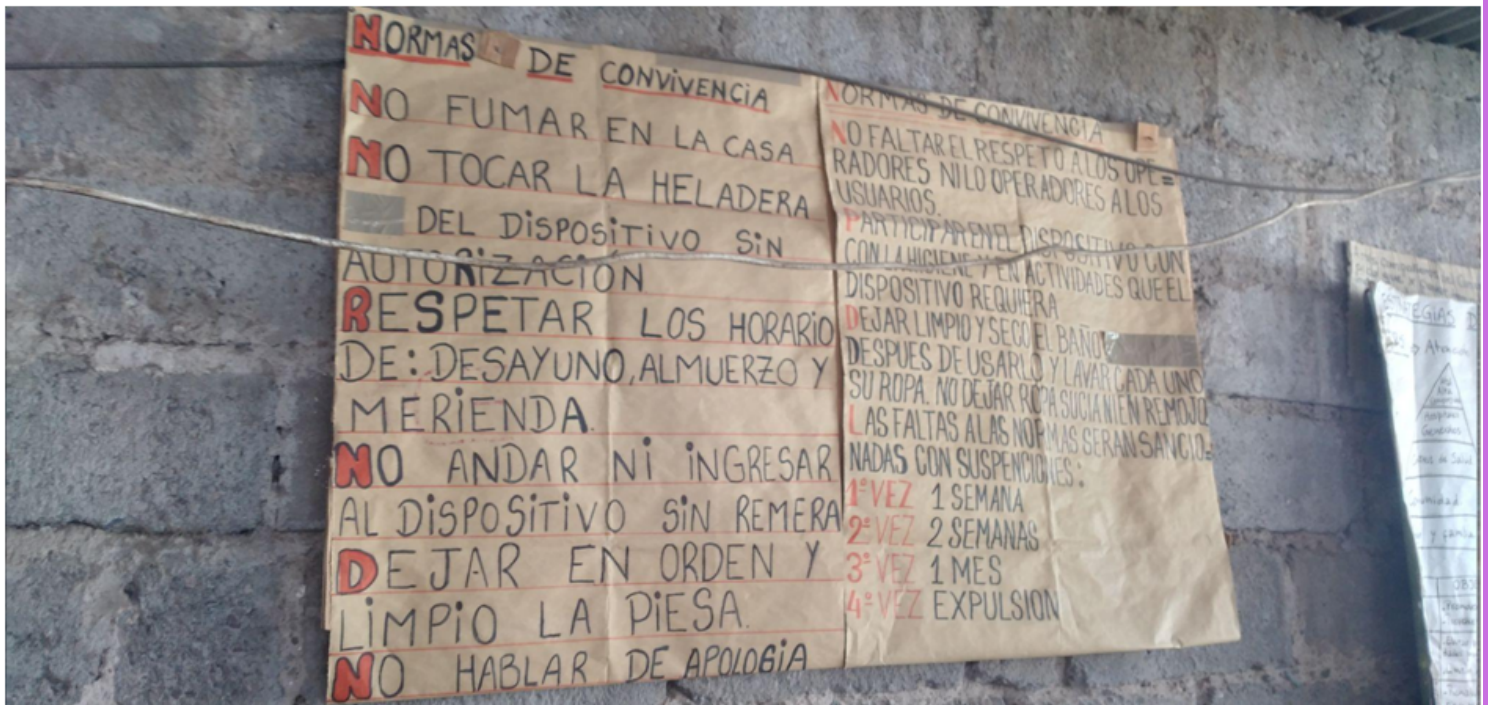 NORMAS DE CONVIVENCIA
NO FUMAR EN LA CASA
NO TOCAR LA HELADERA
DEL DISPOSITIVO SIN
AUTORIZACIÓN
RESPETAR LOS HORARIO
DE: DESAYUNO, ALMUERZO Y
MERIENDA.
NO ANDAR NI INGRESAR
AL DISPOSITIVO SIN REMERA
DEJAR EN ORDEN Y
LIMPIO LA PIESA.
NO HABLAR DE APOLOGIA
NORMAS DE CONVIVENCIA
NO FALTAR EL RESPETO A LOS OPE=
RADORES NI LO OPERADORES A LOS
USUARIOS.
PARTICIPAR EN EL DISPOSITIVO CON
CON LA HIGIENE Y EN ACTIVIDADES QUE EL
DISPOSITIVO REQUIERA
DEJAR LIMPIO Y SECO EL BAÑO
DESPUES DE USARLO Y LAVAR CADA UNO
SU ROPA. NO DEJAR ROPA SUCIA NI EN REMOJO
LAS FALTAS A LAS NORMAS SERAN SANCIO=
NADAS CON SUSPENCIONES:
1ª VEZ 1 SEMANA
2ª VEZ 2 SEMANAS
3ª VEZ 1 MES
4ª VEZ EXPULSION
Hospitales
Generales
de Salud